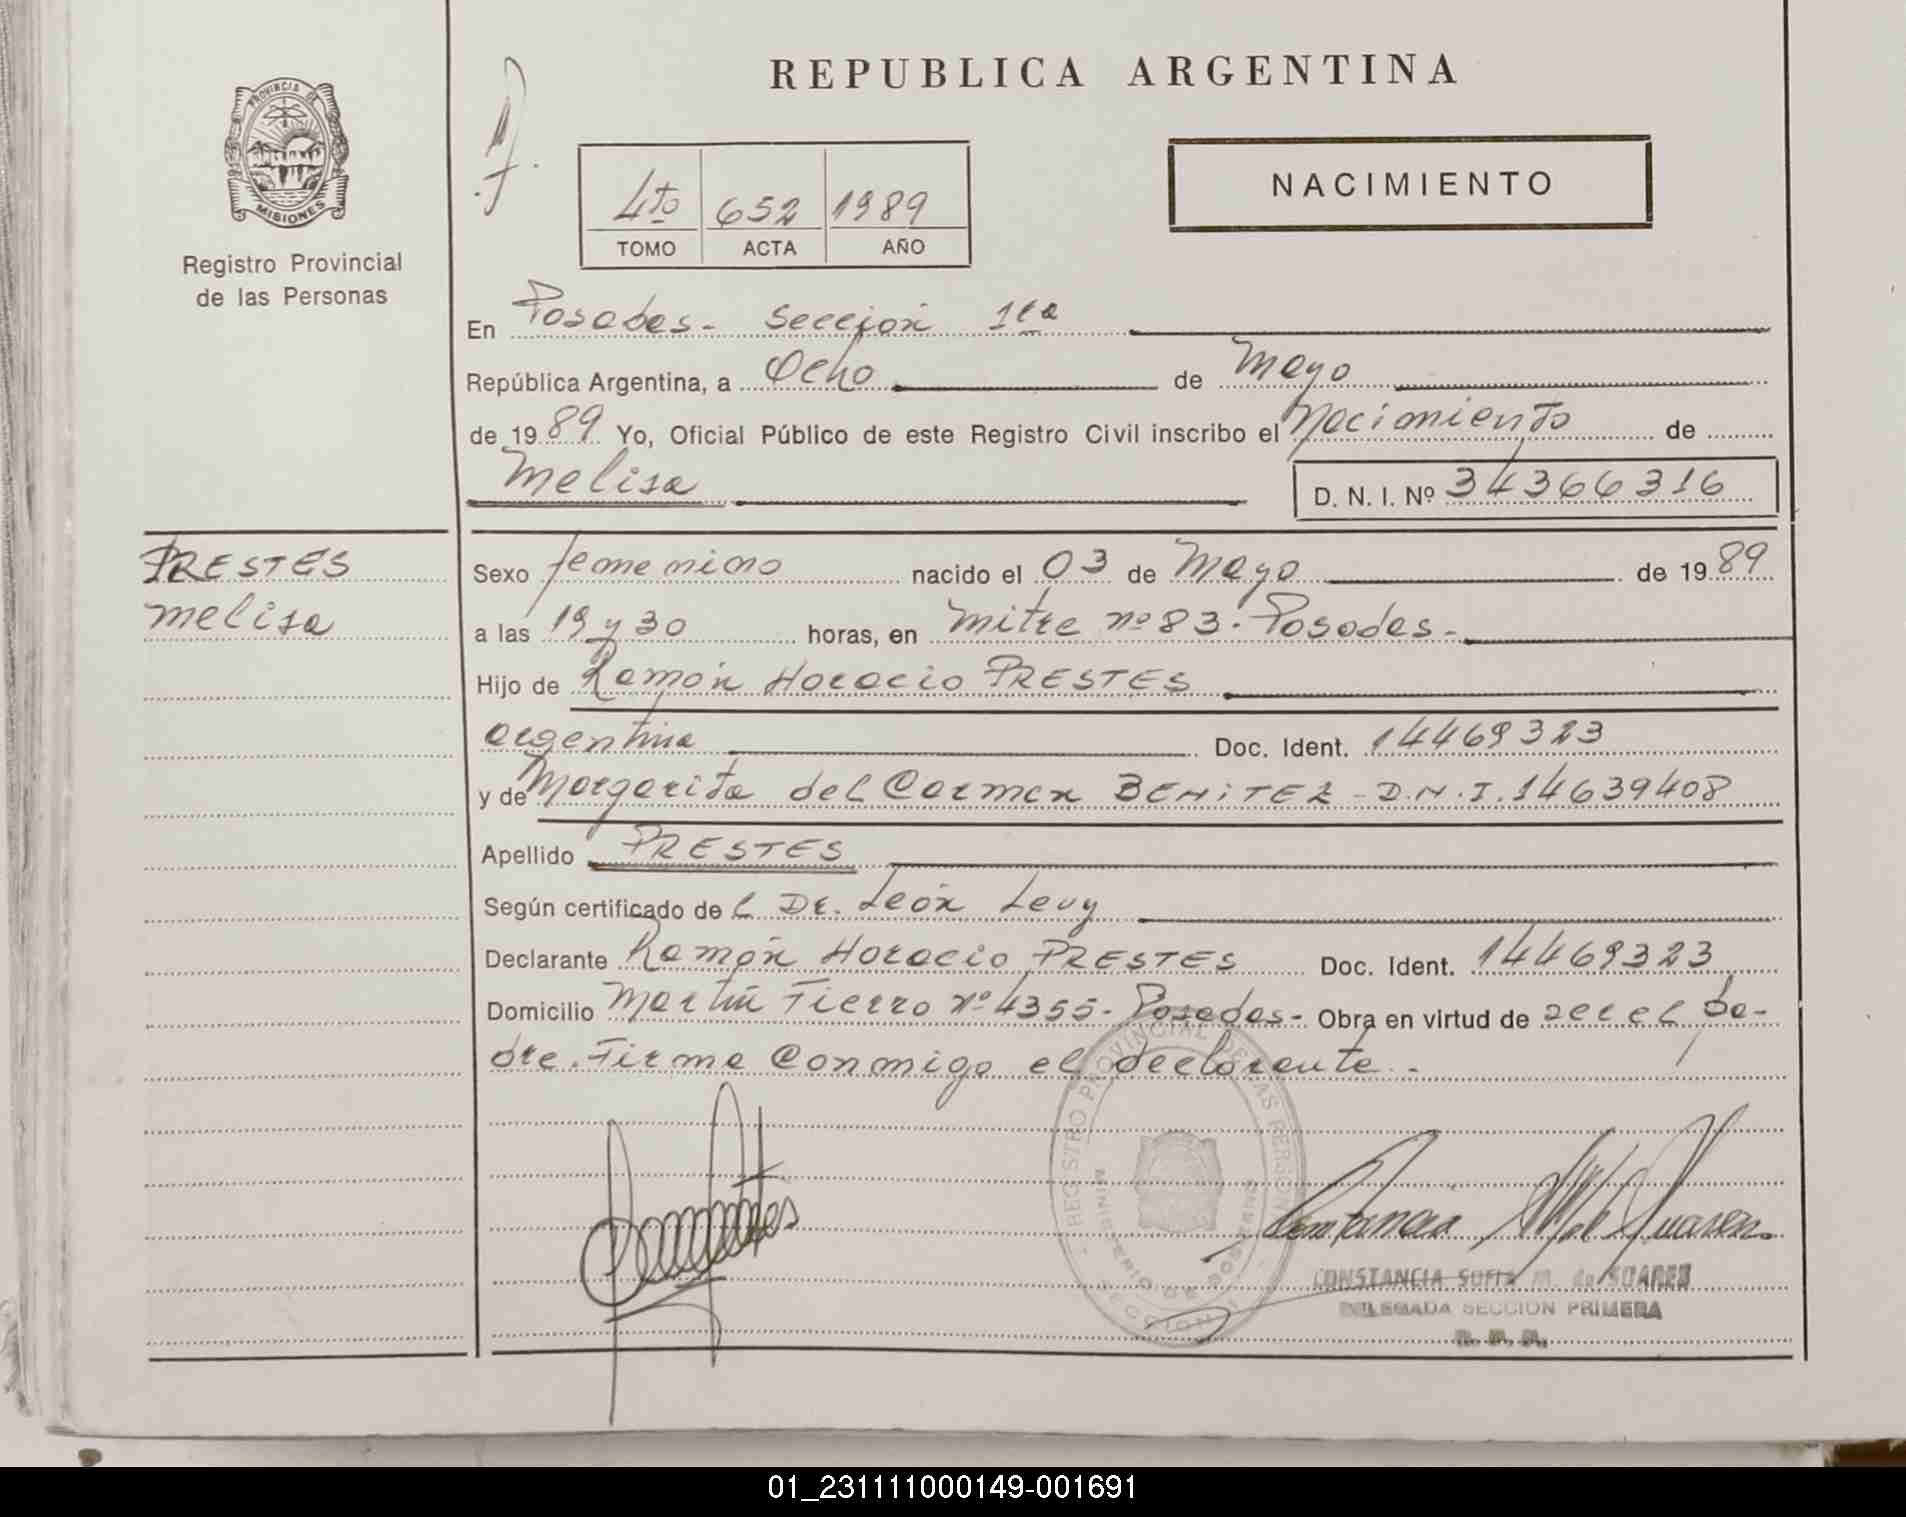 REPUBLICA ARGENTINA
PROVINCIA DE
MISIONES
Registro Provincial
de las Personas
4to 652 1989
TOMO ACTA AÑO
NACIMIENTO
En Posadas - Sección 1ra
República Argentina, a Ocho de Mayo
de 1989 Yo, Oficial Público de este Registro Civil inscribo el Nacimiento de
Melisa D. N. I. Nº 34366316
PRESTES
Melisa
Sexo femenino nacido el 03 de Mayo de 1989
a las 19 y 30 horas, en Mitre nº 83. Posadas -
Hijo de Ramón Horacio PRESTES
argentina Doc. Ident. 14469323
y de Margarita del Carmen BENITEZ - D.N.I. 14639408
Apellido PRESTES
Según certificado de L Dr. León Levy
Declarante Ramón Horacio PRESTES Doc. Ident. 14469323
Domicilio Martín Fierro Nº 4355 - Posadas - Obra en virtud de ser el pa-
dre. Firma Conmigo el declarante. -
REGISTRO PROVINCIAL DE LAS PERSONAS
MINISTERIO DE GOBIERNO
SECCION 1
CONSTANCIA SOFIA M. de SUAREZ
DELEGADA SECCION PRIMERA
R. P. P.
01_231111000149-001691